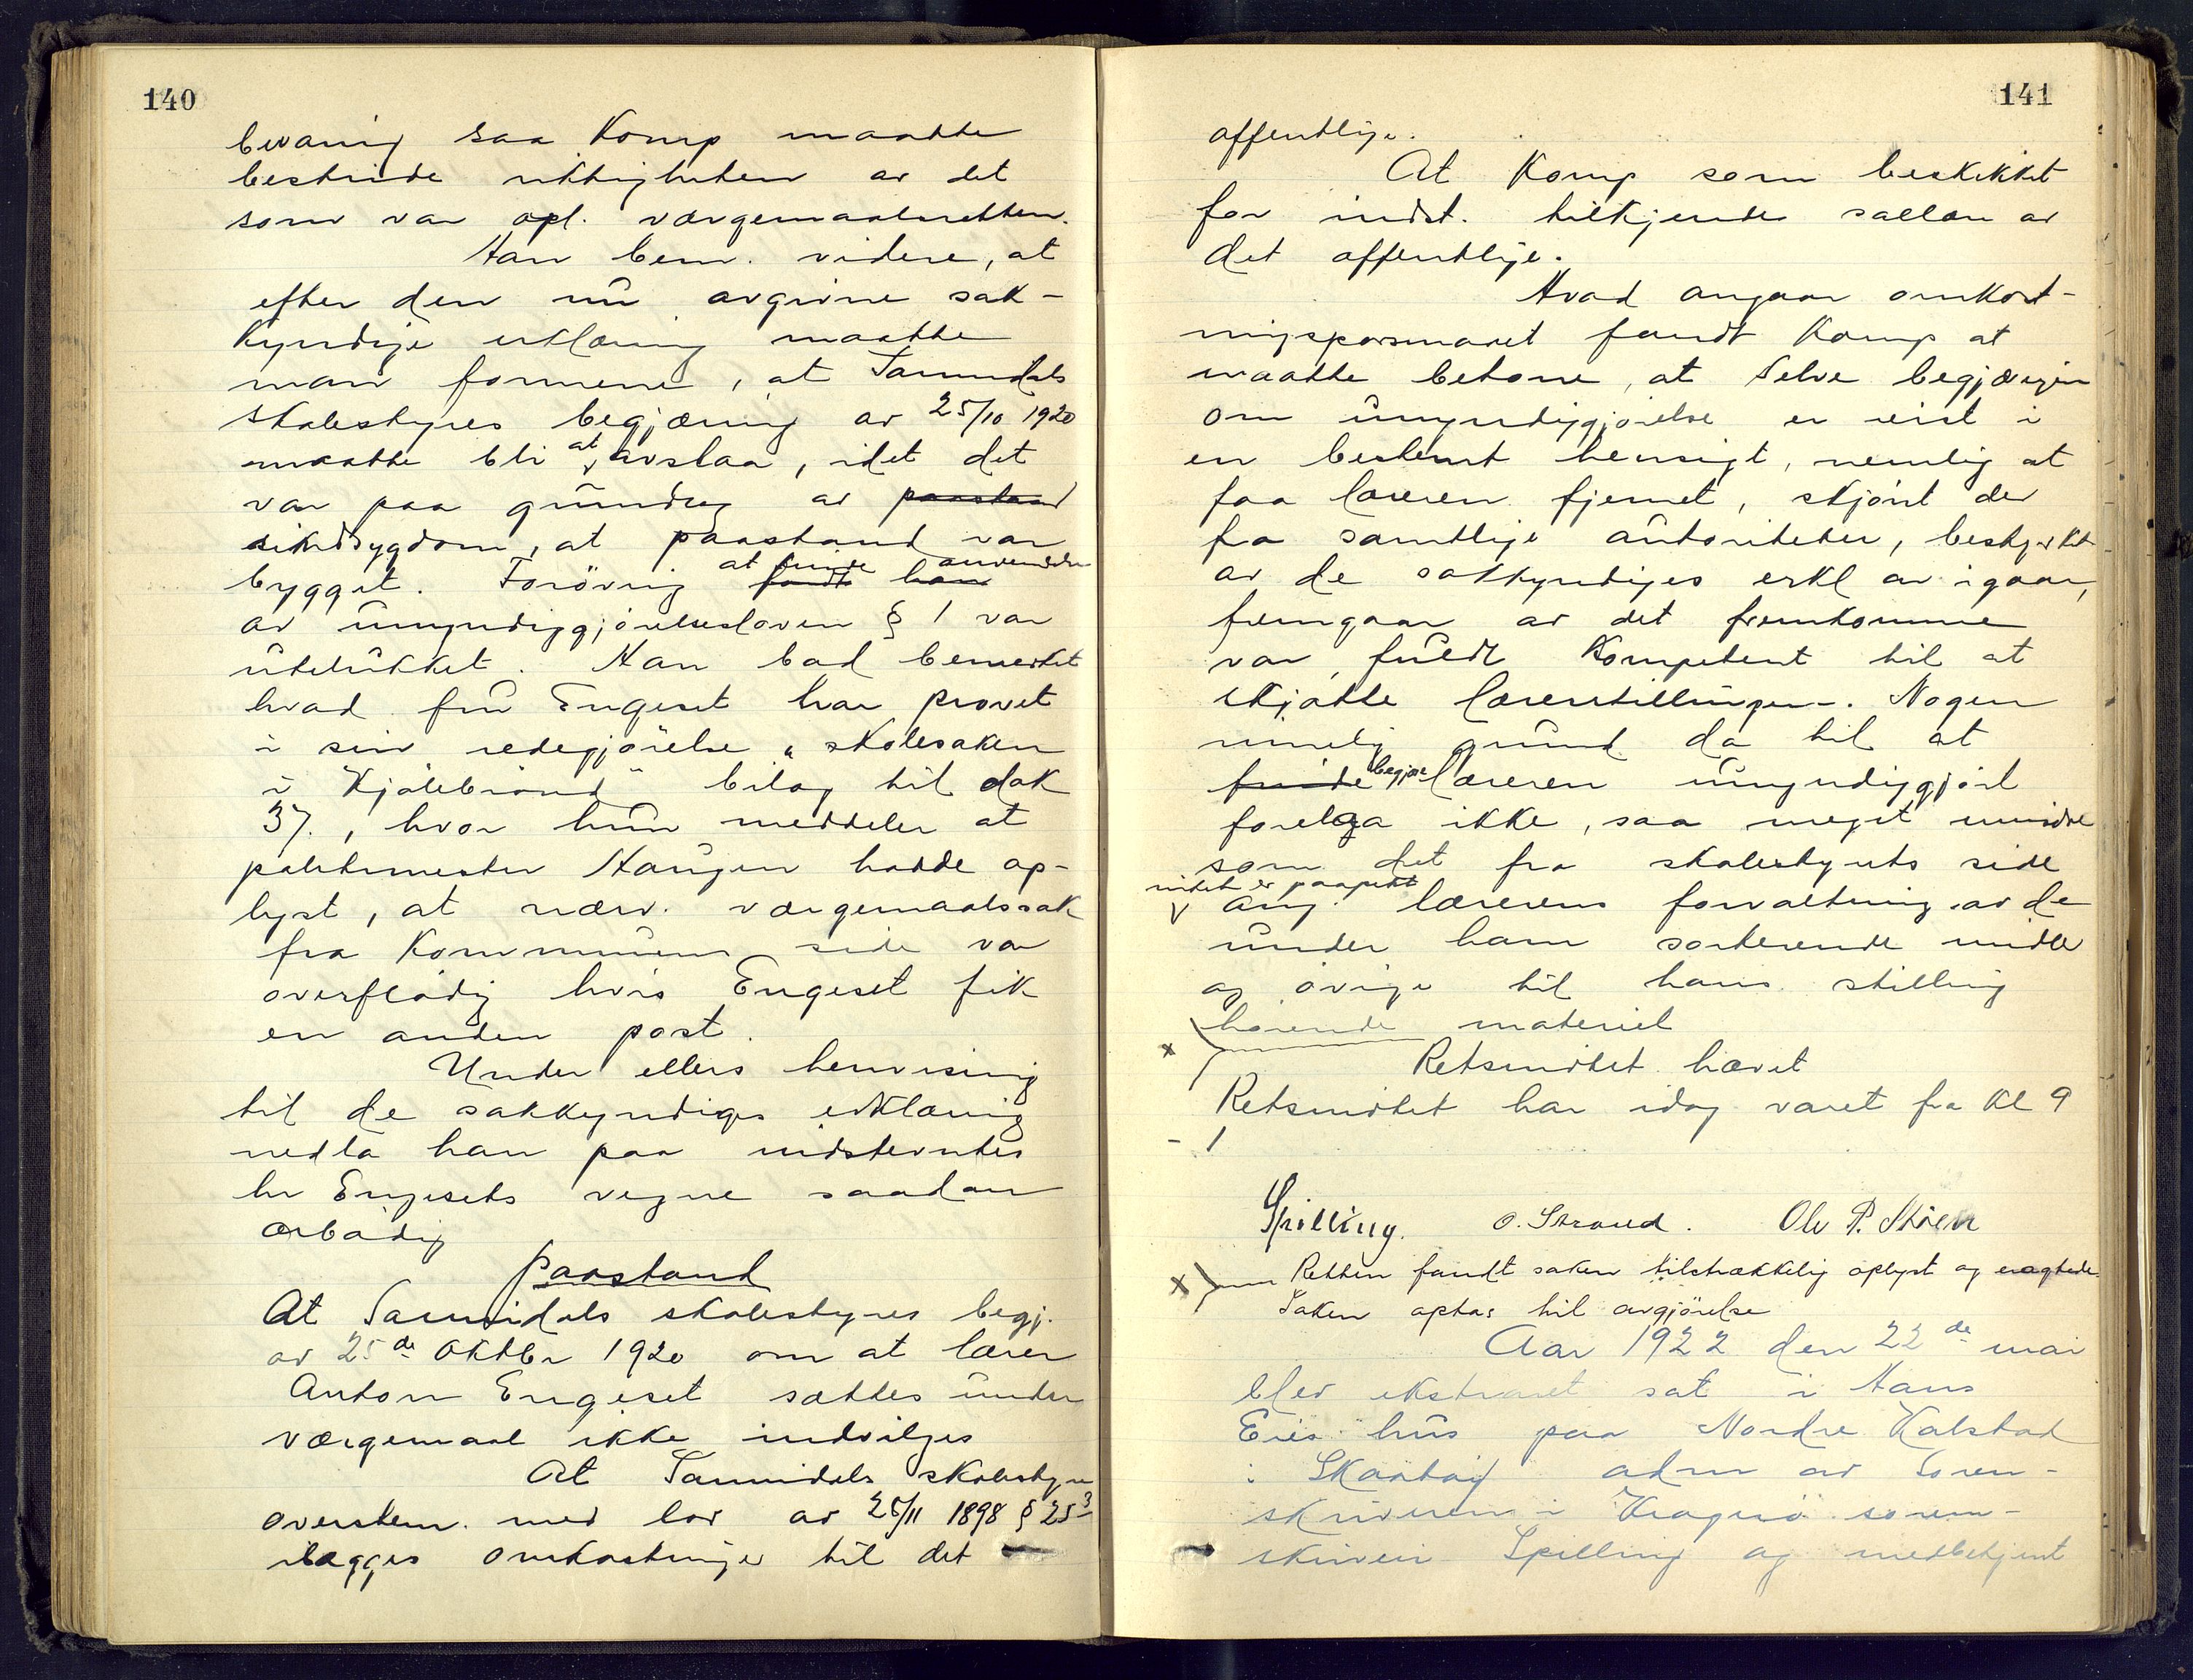 140
bevaring saa Komp maatte
bestride riktigheten av det
som var opl. værgemaalsretten.
Han bem. videre, at
efter den nu avgivne sak-
kyndige erklæring maatte
man formene, at Sannidals
skolestyres begjæring av 25/10 1920
maatte bli at avslaa, idet det
var paa grundlag av paastand
sindssygdom, at paastand var
bygget. Forøvrig at finde anvendelse fandt han
av umyndiggjørelsesloven § 1 var
utelukket. Han bad bemerket
hvad fru Engeset har provet
i sin redegjørelse "skolesaken
i Kjølebrønd" bilag til dok
37., hvor hun meddeler at
politimester Haugen hadde op-
lyst, at nærv. værgemaalssak
fra Kommunens side var
overflødig hvis Engeset fik
en anden post.
Under ellers henvisning
til de sakkyndiges erklæring
nedla han paa indstevntes
hr Engesets vegne saadan
ærbødig
Paastand
At Sannidals skolestyres begj.
av 25de Oktbr 1920 om at lærer
Anton Engeset sættes under
værgemaal ikke indvilges
At Sannidals skolestyre
overstem. med lov av 28/11 1898 § 25 3
ilægges omkostninger til det
141
offentlige.
At Komp som beskikket
for indst. tilkjendes sallær av
det offentlige.
Hvad angaar omkost-
ningsspørsmaalet fandt Komp at
maatte betone, at selve begjæringen
om umyndiggjørelse er reist i
en bestemt hensigt, nemlig at
faa læreren fjernet, skjønt der
fra samtlige autoriteter, bestyrket
av de sakkyndiges erkl av igaar,
fremgaar av det fremkomne
var fuldt kompetent til at
skjøtte lærerstillingen. Nogen
rimelig grund da til at
finde begjære læreren umyndiggjort
forelaa ikke, saa meget mindre
som det fra skolestyrets side
intet er paapekt
ang. lærerens forvaltning av de
under ham sorterende midler
og øvrige til hans stilling
hørende materiel
x
Retsmøtet hævet
Retsmøtet har idag varet fra Kl 9
- 1
Spilling. O. Strand. Ole P. Støen
x Retten fandt saken tilstrækkelig oplyst og eragtede
Saken optas til avgjørelse
Aar 1922 den 22de mai
blev ekstraret sat i Hans
Eies hus paa Nordre Kalstad
i Skaatøy adm av Soren-
skriveren i Kragerø soren-
skriver Spilling og medbetjent